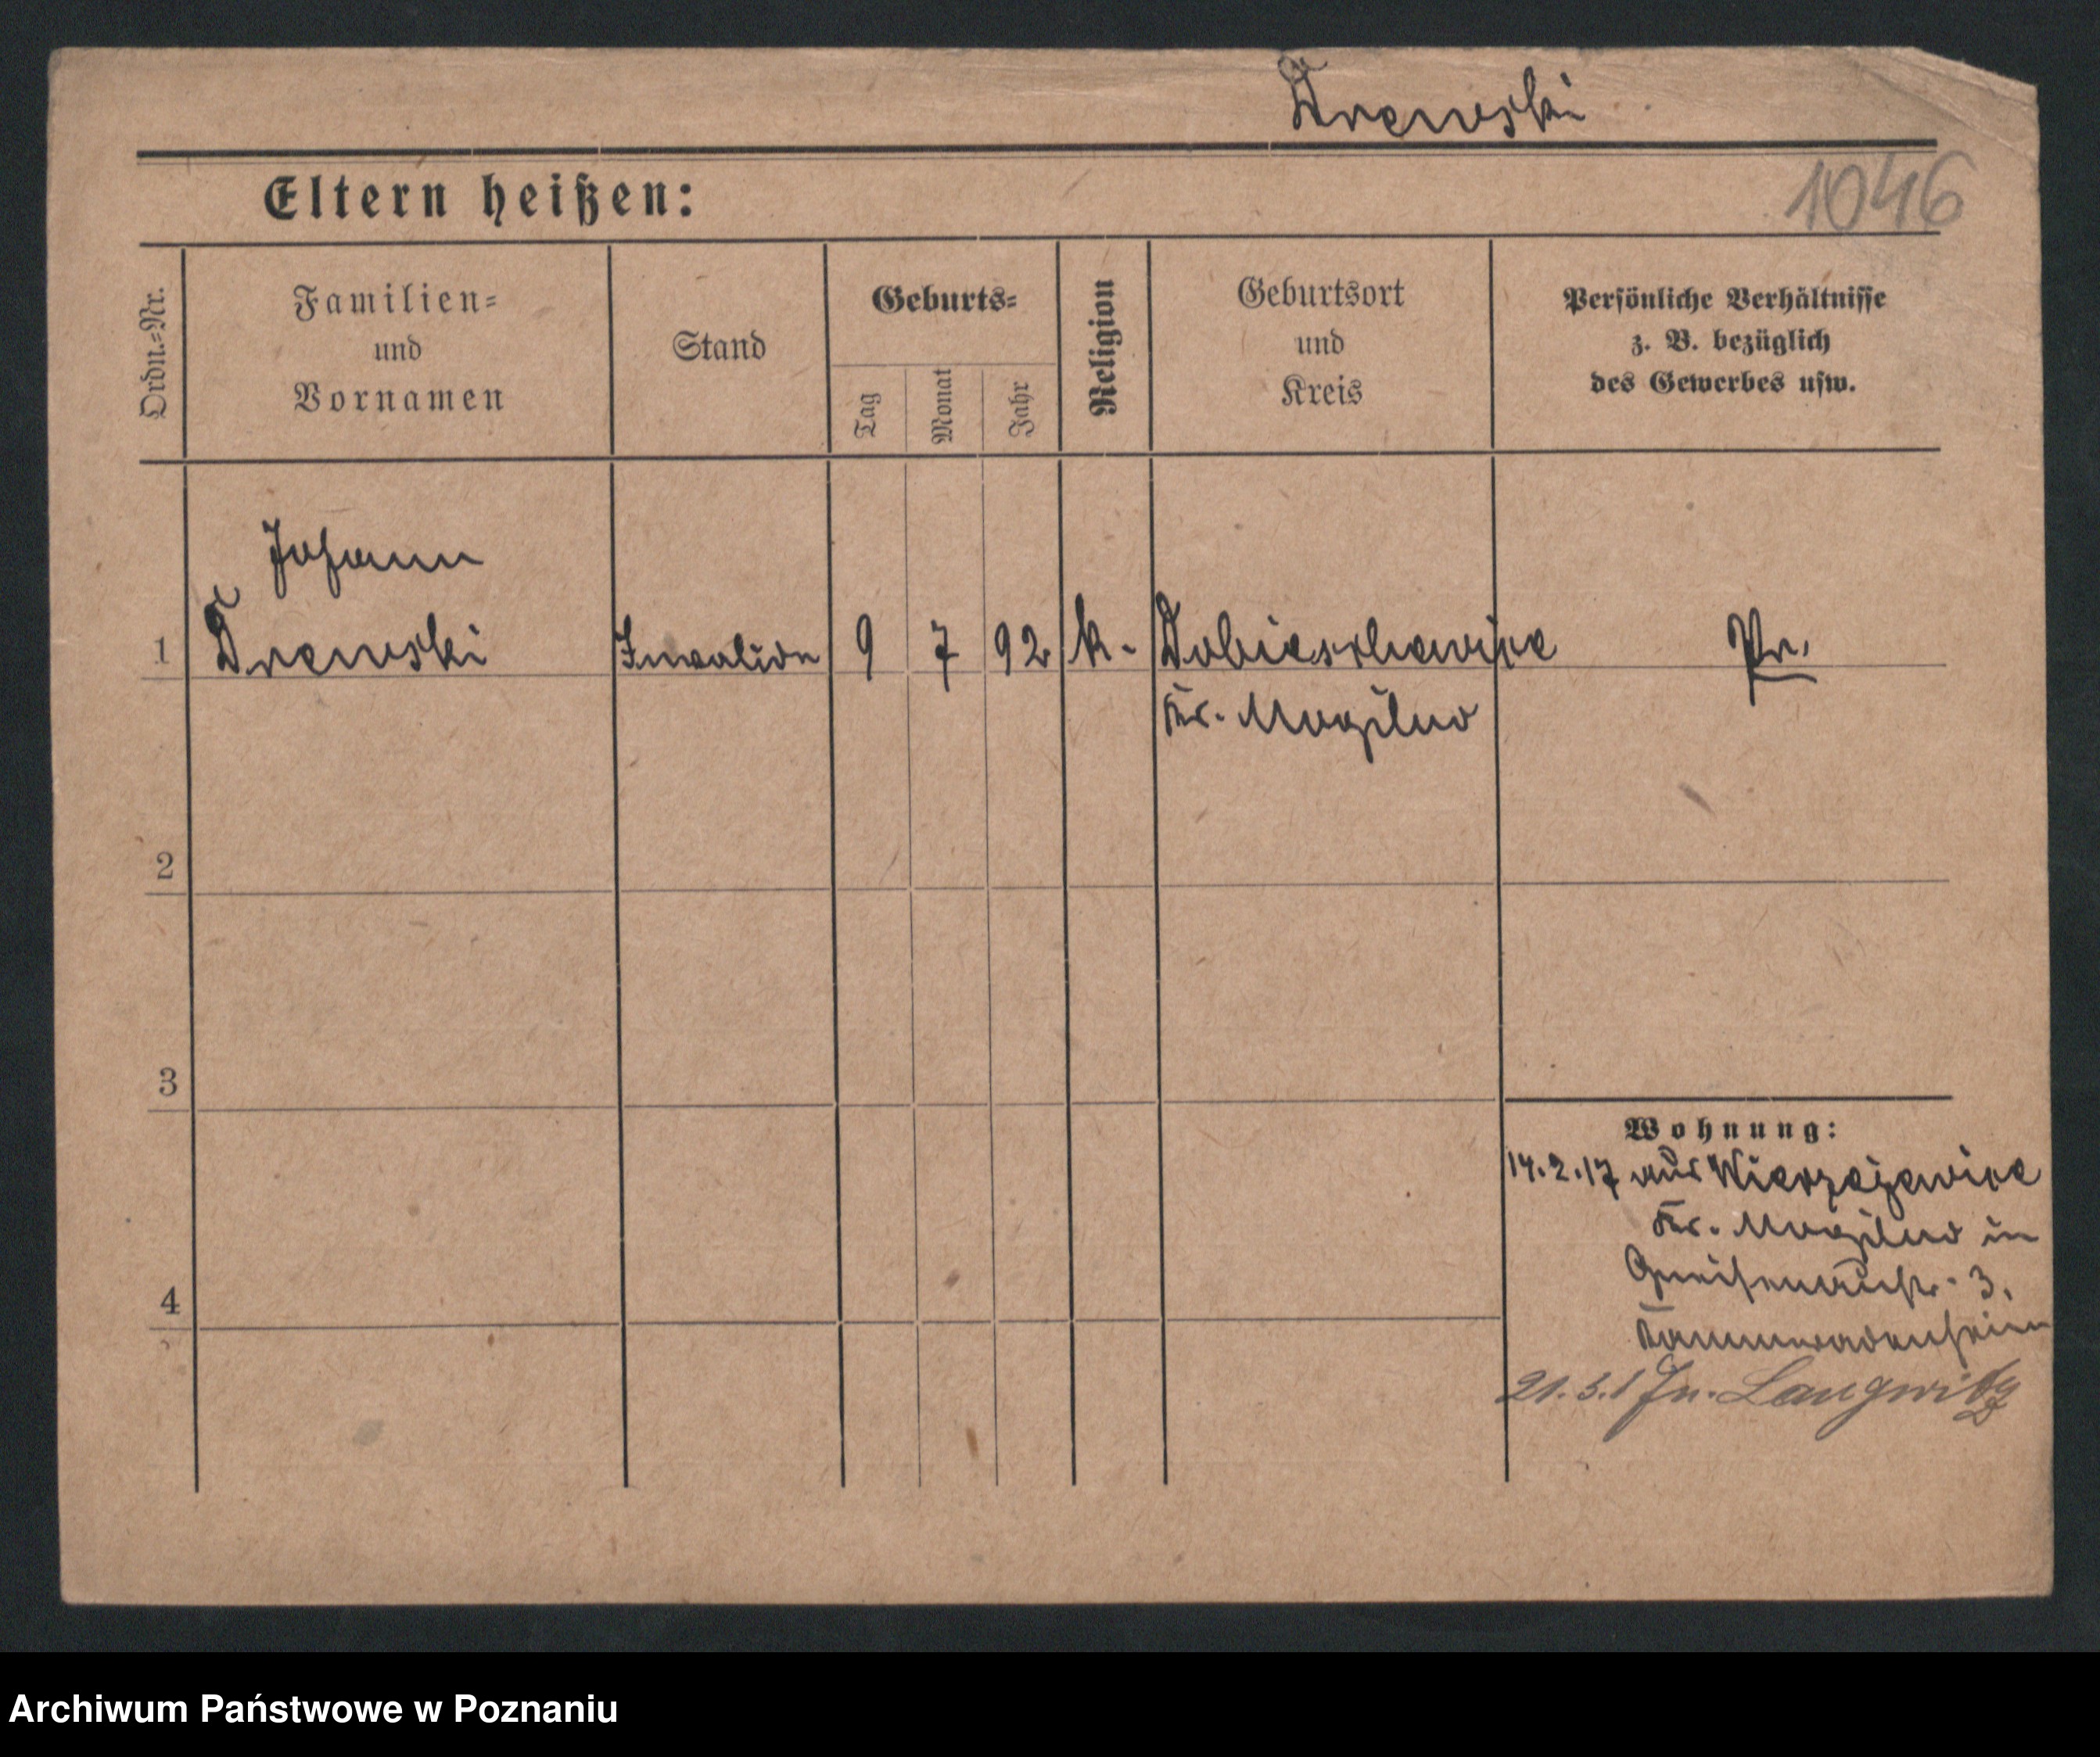 Drewski
1046
Eltern heißen:
Ordn.-Nr.
Familien-
und
Vornamen
Stand
Geburts-
Tag
Monat
Jahr
Religion
Geburtsort
und
Kreis
Persönliche Verhältnisse
z. B. bezüglich
des Gewerbes usw.
Johann
1 Drewski Invalide 9 7 92 k. Pr.
Kr. Mogilno
2
3
4
Wohnung:
14.2.17 aus
Kr. Mogilno in
Gneisenaustr. 3.
Kammeradenheim
Langwitz
Archiwum Państwowe w Poznaniu